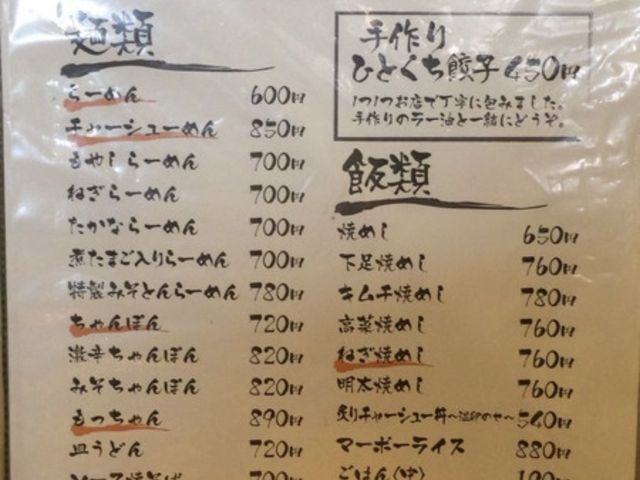 麺類
らーめん 600円
チャーシューめん 850円
もやしらーめん 700円
ねぎらーめん 700円
たかならーめん 700円
煮たまご入りらーめん 700円
特製みそとんらーめん 780円
ちゃんぽん 720円
激辛ちゃんぽん 820円
みそちゃんぽん 820円
もっちゃん 890円
皿うどん 720円
ソース焼そば 700円
手作り
ひとくち餃子 450円
1つ1つお店で丁寧に包みました。
手作りのラー油と一緒にどうぞ。
飯類
焼めし 650円
下足焼めし 760円
キムチ焼めし 780円
高菜焼めし 760円
ねぎ焼めし 760円
明太焼めし 760円
炙りチャーシュー丼〜温卵のせ〜 540円
マーボーライス 880円
ごはん(中) 190円